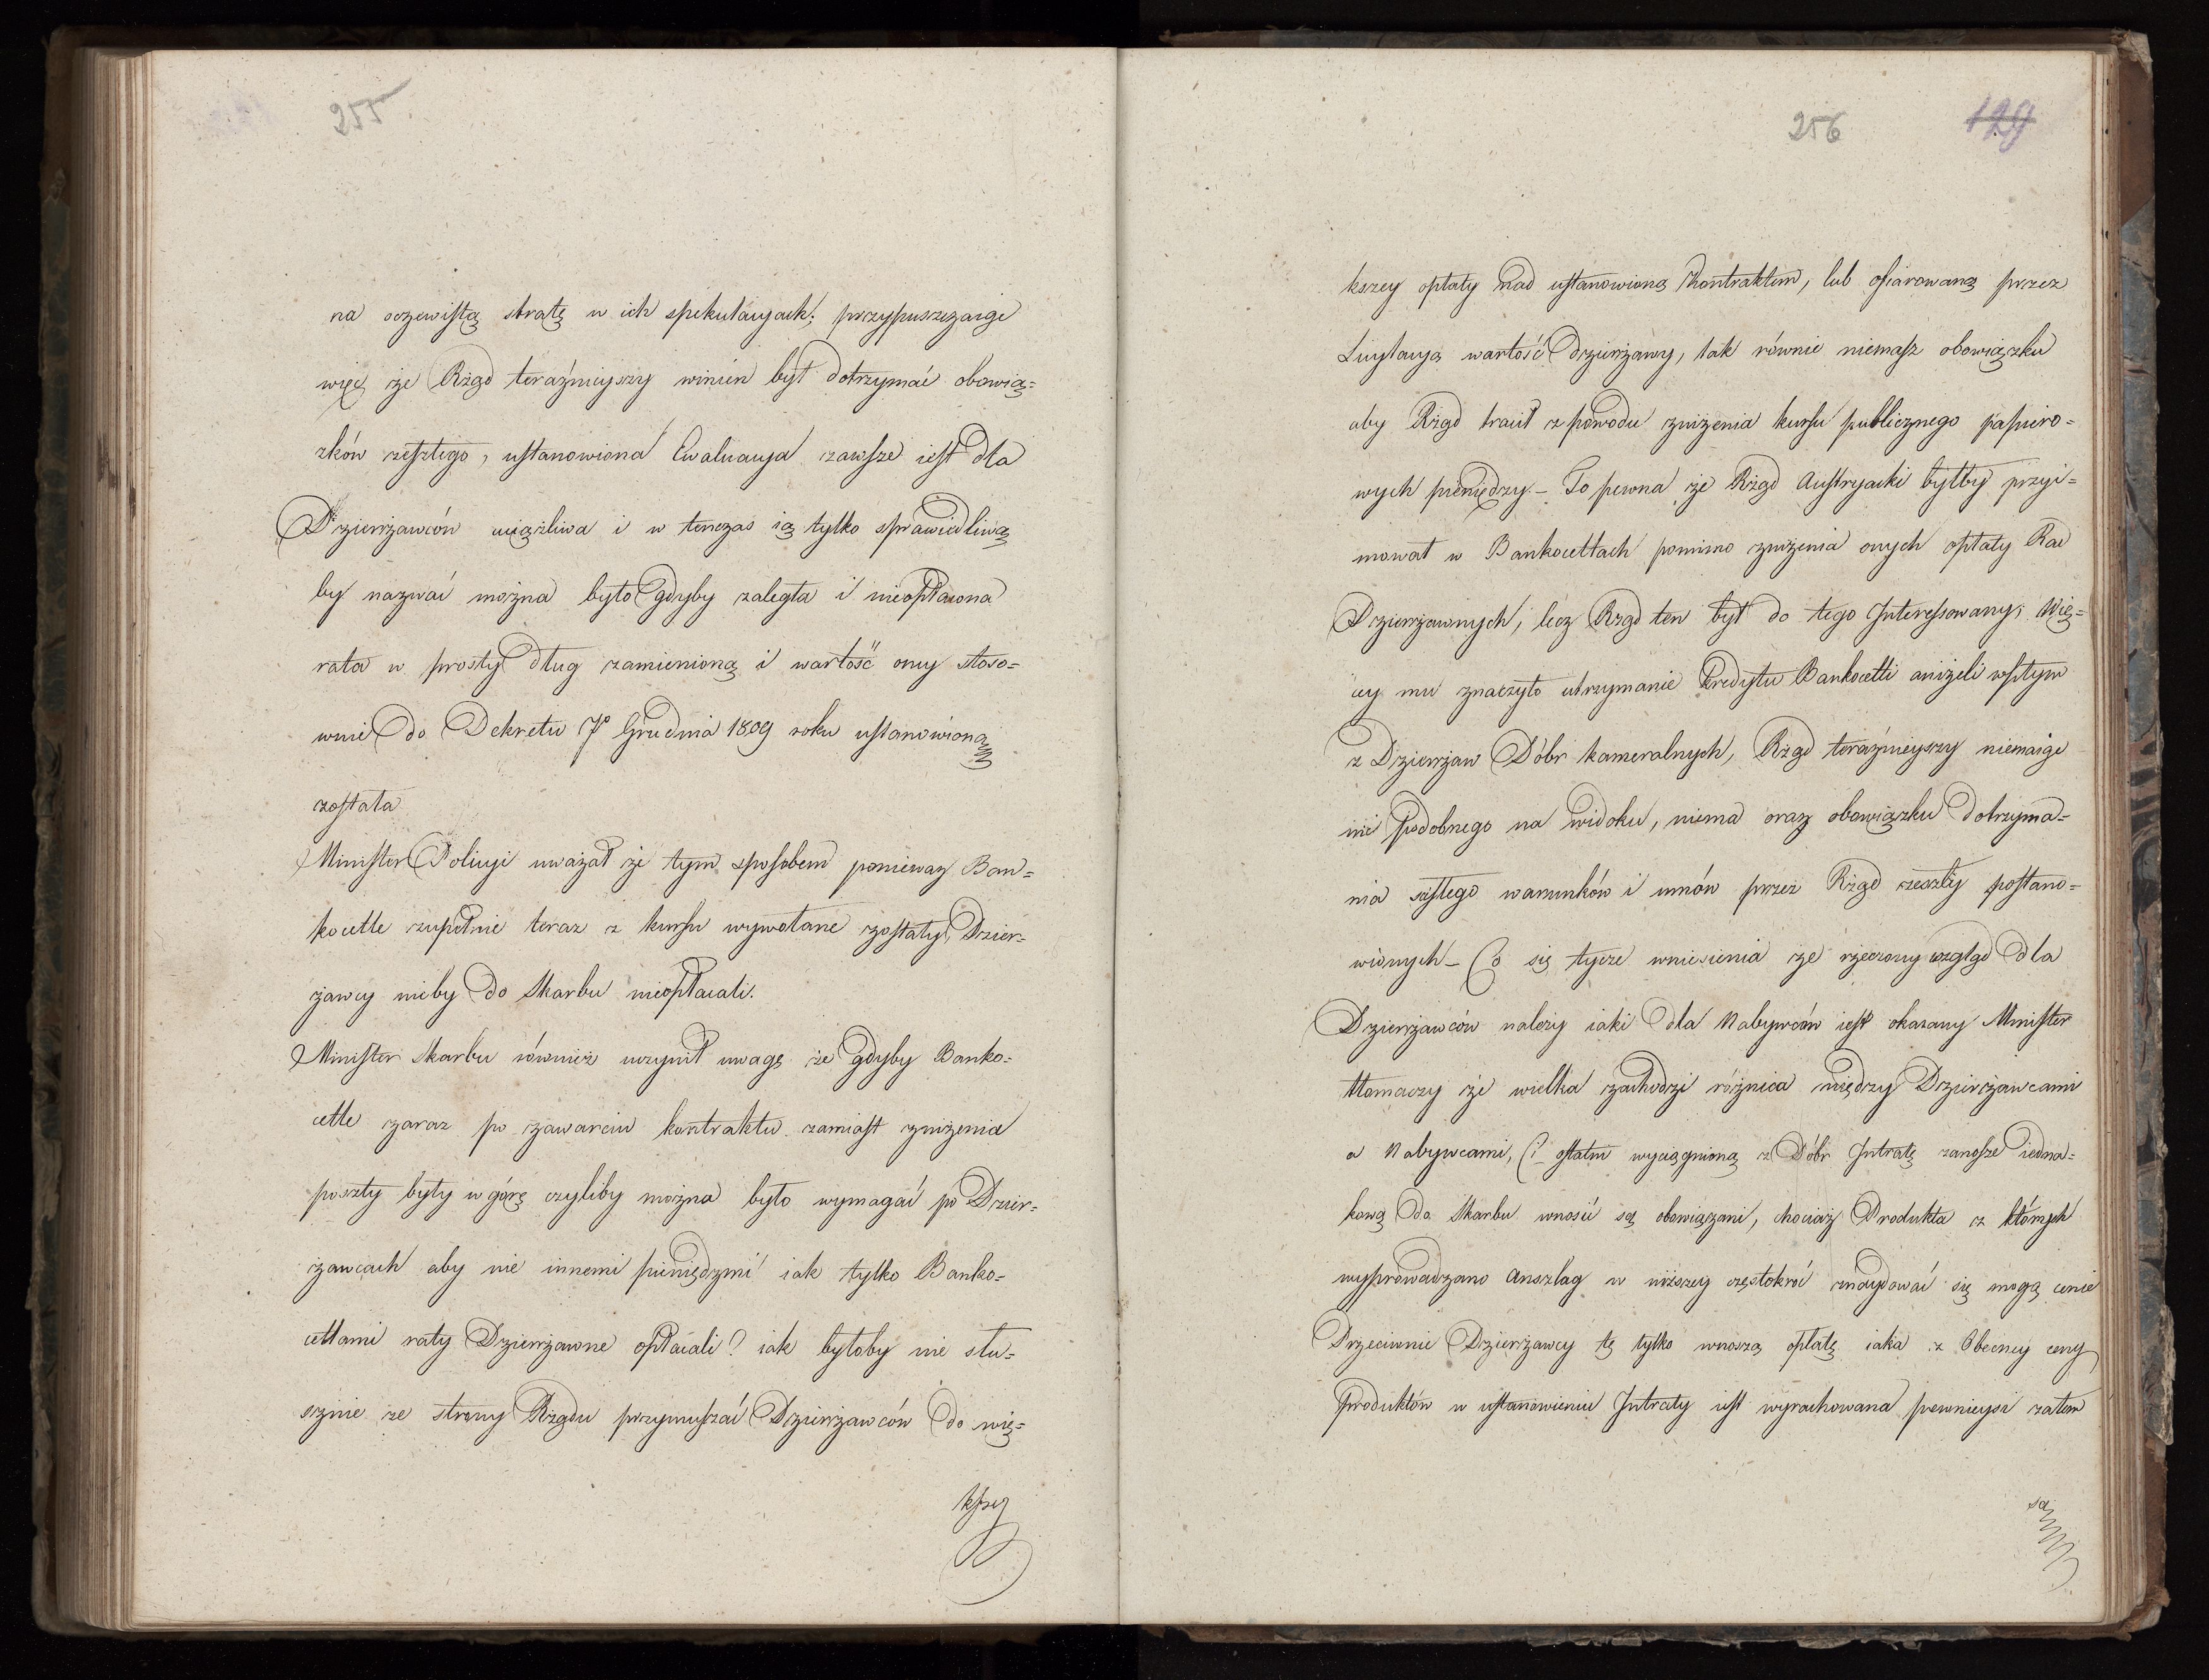 255
na oczewistą stratę w ich spekulacyach; przypuszczaiąc
więc że Rząd teraźnieyszy winien był dotrzymać obowią=
zków zeszłego, ustanowiona Ewaluacya zawsze iest dla
Dzierżawców uciążliwa i w tenczas ią tylko sprawiedliwą
by nazwać można było gdyby zaległa i nieopłacona
rata w prosty dług zamienioną i wartość oney stoso=
wnie do Dekretu 7° Grudnia 1809 roku ustanowioną
została
Minister Policyi uważał że tym sposobem ponieważ Ban=
kocetle zupełnie teraz z kursu wywołane zostały, Dzier=
żawcy nicby do Skarbu nieopłacali.
Minister Skarbu również uczynił uwagę że gdyby Banko=
cetle zaraz po zawarciu kontraktu zamiast zniżenia
poszły były w górę czyliby można było wymagać po Dzier=
żawcach aby nie innemi pieniędzmi iak tylko Banko=
cetlami raty Dzierżawne opłacali? iak byłoby nie słu=
sznie ze strony Rządu przymuszać Dzierżawców do wię=
kszey
256
129
kszey opłaty nad ustanowioną kontraktem, lub ofiarowaną przez
Licytacyą wartość Dzierżawy, tak równie niemasz obowiązku
aby Rząd tracił z powodu zniżenia kursu publicznego papiero=
wych pieniędzy – To pewna że Rząd Austryacki byłby przyi=
mował w Bankocetlach pomimo zniżenia onych opłaty Rat
Dzierżawnych, lecz Rząd ten był do tego Interessowany; Wię=
cey mu znaczyło utrzymanie kredytu Bankocetli aniżeli wpływ
z Dzierżaw Dóbr kameralnych, Rząd teraźnieyszy niemaiąc
nic podobnego na widoku, niema oraz obowiązku dotrzyma=
nia ścisłego warunków i umów przez Rząd zeszły postano=
wionych – Co się tycze wniesienia że rzeczony wzgląd dla
Dzierżawców należy iaki dla Nabywców iest okazany Minister
tłomaczy że wielka zachodzi różnica między Dzierżawcami
a Nabywcami, Ci ostatni wyciągnioną z Dóbr Intratę zawsze iedna=
kową do Skarbu wnosić są obowiązani, chociaż Produkta z których
wyprowadzano Anszlag w niższey częstokroć znaydować się mogą cenie
Przeciwnie Dzierżawcy tę tylko wnoszą opłatę iaka z Obecney ceny
Produktów w ustanowieniu Intraty iest wyrachowana pewnieysi zatem
są